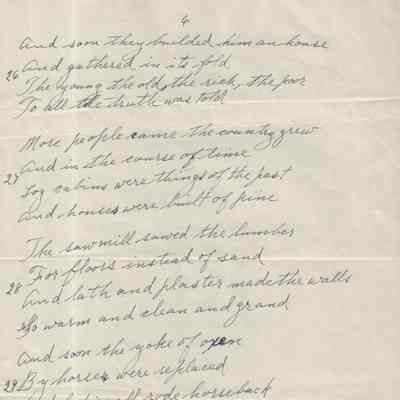 6
And soon they builded him an house
26 And gathered in its fold
The young the old, the rich, the poor
To all the truth was told
More people came the country grew
27 And in the course of time
Log cabins were things of the past
And houses were built of pine
The sawmill sawed the lumber
28 For floors instead of sand
And lath and plaster made the walls
So warm and clean and grand
And soon the yoke of oxen
29 By horses were replaced
rode horseback